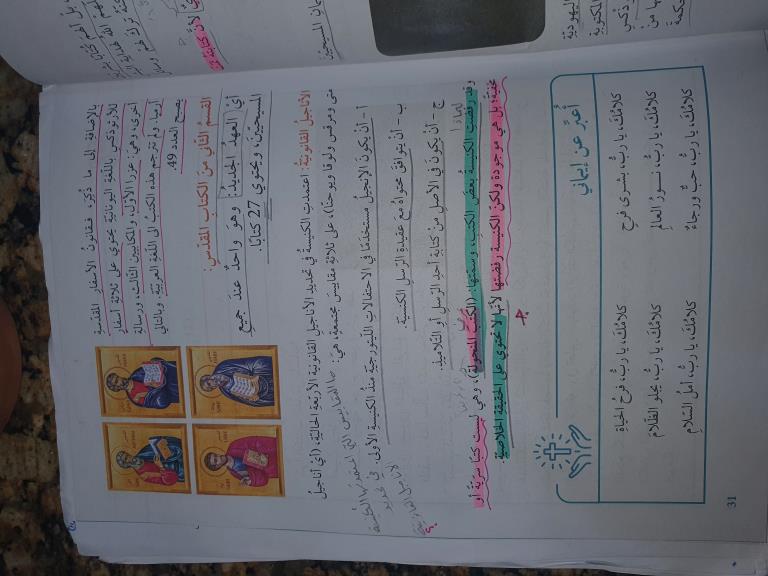 بالإضافة إلى ما ذُكِرَ، فقانونُ الأسفارِ المقدّسةِ
للأرثوذكس باللغة اليونانيّة يحتوي على ثلاثة أسفارٍ
أخرى، وهي: عزرا الأوّل، والمكابيين الثالث، ورسالة
إرميا، ولم تترجم هذه الكتبُ إلى اللغة العربيّة. وبالتالي
يصبح العدد 49.
القسمُ الثّاني من الكتاب المقدّس:
أي العهد الجديد: وهو واحدٌ عندَ جميعِ
المسيحيّين، ويحتوي 27 كتابًا.
الأناجيل القانونيّة: اعتمدتِ الكنيسةُ في تحديدِ الأناجيل القانونيّة الأربعة الحاليّة، (أي أناجيلُ
متى ومرقس ولوقا ويوحنا)، على ثلاثةِ مقاييسَ مجتمعةٍ، هي:
أ – أن يكونَ الإنجيلُ مستخدمًا في الاحتفالاتِ الليتورجيّة منذُ الكنيسةِ الأولى
ب – أن يتوافقَ محتواهُ معَ عقيدةِ الرّسلِ الكنسية
ج – أن يكونَ في الأصلِ من كتابةِ أحدِ الرّسلِ أو التّلاميذِ.
وقد رفضتِ الكنيسةُ بعضَ الكتبِ، وسمّتها: (الكتبُ المنحولة)، وهي ليست كتبًا سريّةً أو
مخفيّة؛ بل هي موجودة ولكن الكنيسة رفضتها لأنّها لا تحتوي على الحقيقةِ الخلاصيّة
أعبّر عن إيماني
كلامُكَ، يا ربُّ، فرحُ الحياةِ
كلامُكَ، يا ربُّ، بشرى فرحٍ
كلامُكَ، يا ربُّ، يجلو الظّلامَ
كلامُكَ، يا ربُّ، نورُ العالمِ
كلامُكَ، يا ربُّ، أملُ السّلامِ
كلامُكَ، يا ربُّ، حبٌّ ورجاءٌ
31